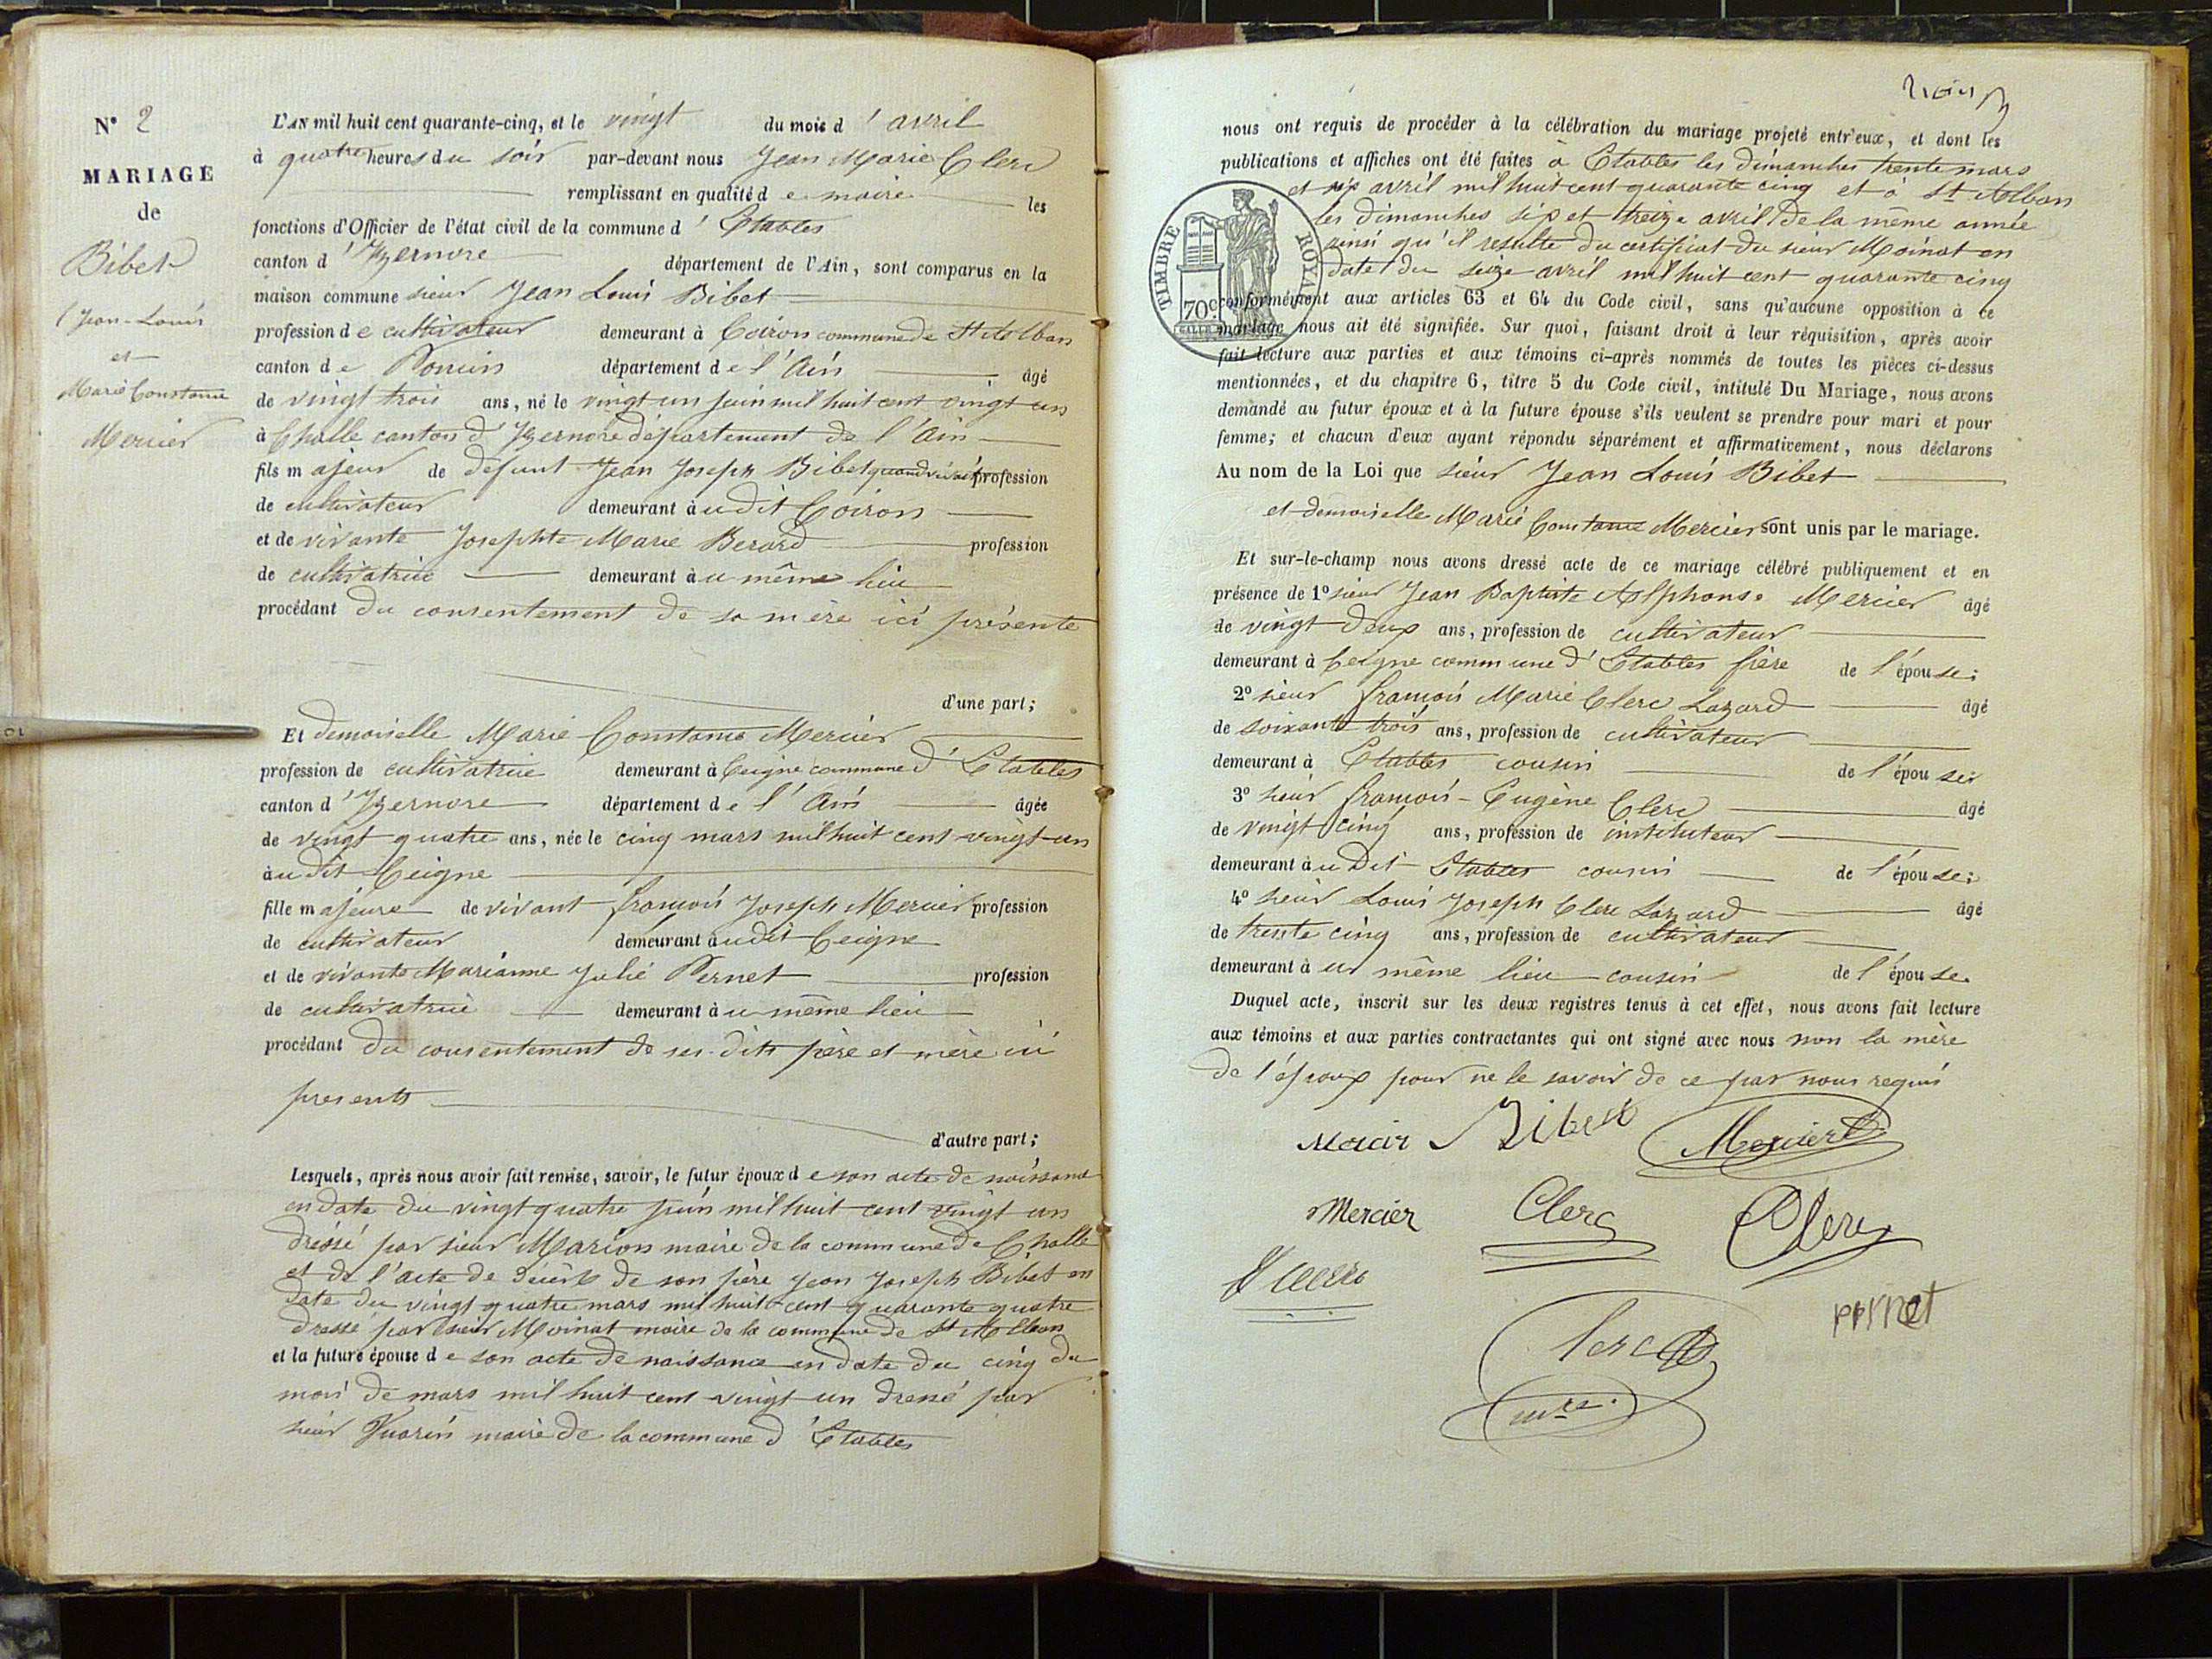 N° 2
MARIAGE
de
Bibet
Jean-Louis
et
Marie Constance
Mercier
L'AN mil huit cent quarante-cinq, et le vingt du mois d'avril
à quatre heures du soir par-devant nous Jean Marie Clerc
remplissant en qualité de maire les
fonctions d'Officier de l'état civil de la commune d'Etables
canton d'Izernore département de l'Ain, sont comparus en la
maison commune sieur Jean Louis Bibet
profession de cultivateur demeurant à Coiron commune de St Alban
canton de Poncin département de l'Ain âgé
de vingt trois ans, né le vingt un juin mil huit cent vingt un
à Challe canton d'Izernore département de l'Ain
fils majeur de défunt Jean Joseph Bibet quand vivait profession
de cultivateur demeurant audit Coiron
et de vivante Josephte Marie Berard profession
de cultivatrice demeurant au même lieu
procédant du consentement de sa mère ici présente
d'une part;
Et demoiselle Marie Constance Mercier
profession de cultivatrice demeurant à Ceigne commune d'Etables
canton d'Izernore département de l'Ain âgée
de vingt quatre ans, née le cinq mars mil huit cent vingt-un
audit Ceigne
fille majeure de vivant françois Joseph Mercier profession
de cultivateur demeurant audit Ceigne
et de vivante Marianne Julie Pernet profession
de cultivatrice demeurant au même lieu
procédant du consentement de ses dits père et mère ici
presents
d'autre part;
Lesquels, après nous avoir fait remise, savoir, le futur époux de son acte de naissance
en date du vingt quatre juin mil huit cent vingt un
dressé par sieur Marion maire de la commune de Challe
et de l'acte de décès de son père Jean Joseph Bibet en
date du vingt quatre mars mil huit cent quarante quatre
dressé par sieur Moinat maire de la commune de St Alban
et la future épouse de son acte de naissance en date du cinq du
mois de mars mil huit cent vingt un dressé par
sieur Vuarin maire de la commune d'Etables
nous ont requis de procéder à la célébration du mariage projeté entr'eux, et dont les
publications et affiches ont été faites à Etables les dimanches trente mars
et six avril mil huit cent quarante cinq et à St Alban
les dimanches six et treize avril de la même année
ainsi qu'il resulte du certificat du sieur Moinat en
date du seize avril mil huit cent quarante cinq
TIMBRE ROYAL
70c
conformément aux articles 63 et 64 du Code civil, sans qu'aucune opposition à ce
mariage nous ait été signifiée. Sur quoi, faisant droit à leur réquisition, après avoir
fait lecture aux parties et aux témoins ci-après nommés de toutes les pièces ci-dessus
mentionnées, et du chapitre 6, titre 5 du Code civil, intitulé Du Mariage, nous avons
demandé au futur époux et à la future épouse s'ils veulent se prendre pour mari et pour
femme; et chacun d'eux ayant répondu séparément et affirmativement, nous déclarons
Au nom de la Loi que sieur Jean Louis Bibet
et demoiselle Marie Constance Mercier sont unis par le mariage.
Et sur-le-champ nous avons dressé acte de ce mariage célébré publiquement et en
présence de 1° sieur Jean Baptiste Alphonse Mercier âgé
de vingt deux ans, profession de cultivateur
demeurant à Ceigne commune d'Etables frère de l'épouse;
2° sieur françois Marie Clerc Lazard âgé
de soixante trois ans, profession de cultivateur
demeurant à Etables cousin de l'épouse;
3° sieur françois-Eugène Clerc âgé
de vingt cinq ans, profession de instituteur
demeurant audit Etables cousin de l'épouse;
4° sieur Louis Joseph Clerc Lazard âgé
de trente cinq ans, profession de cultivateur
demeurant au même lieu cousin de l'épouse.
Duquel acte, inscrit sur les deux registres tenus à cet effet, nous avons fait lecture
aux témoins et aux parties contractantes qui ont signé avec nous non la mère
de l'époux pour ne le savoir de ce par nous requis
Mercier Bibet Mercier
Mercier Clerc Clerc
Clerc
pernet
Clerc
mre.